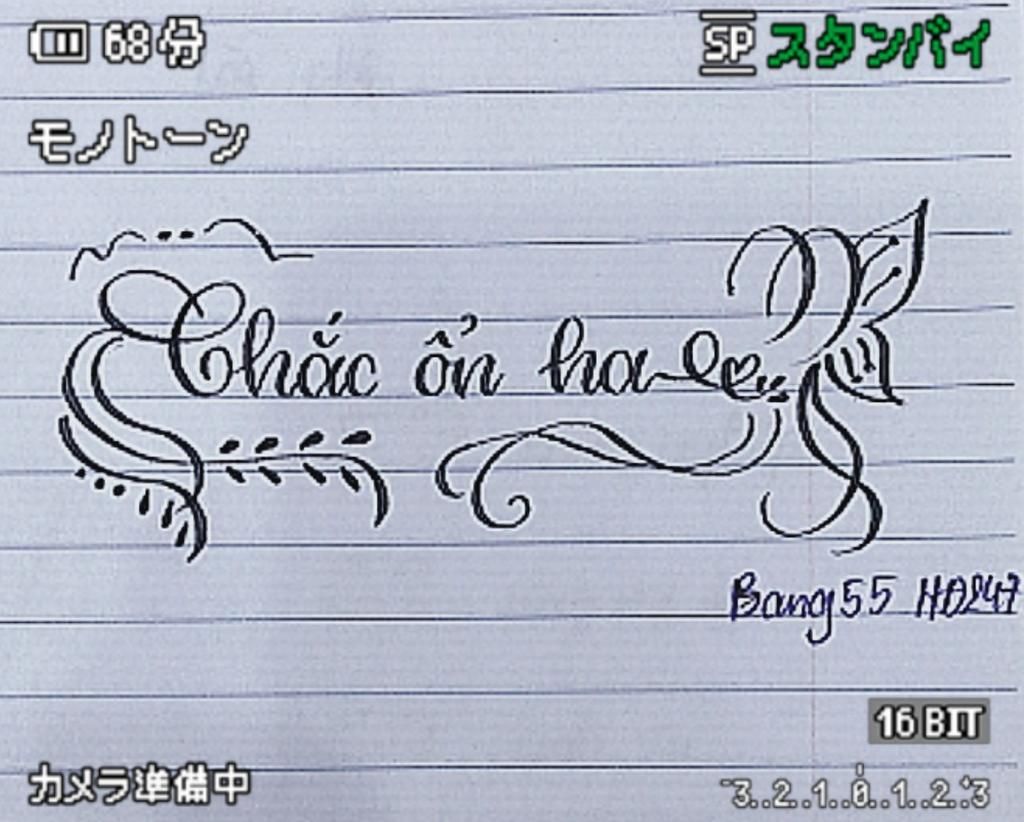 68分 SP スタンバイ
モノトーン
Chắc ổn ha
Bang55 HD247
16 BIT
カメラ準備中
-3..2..1..0..1..2..+3